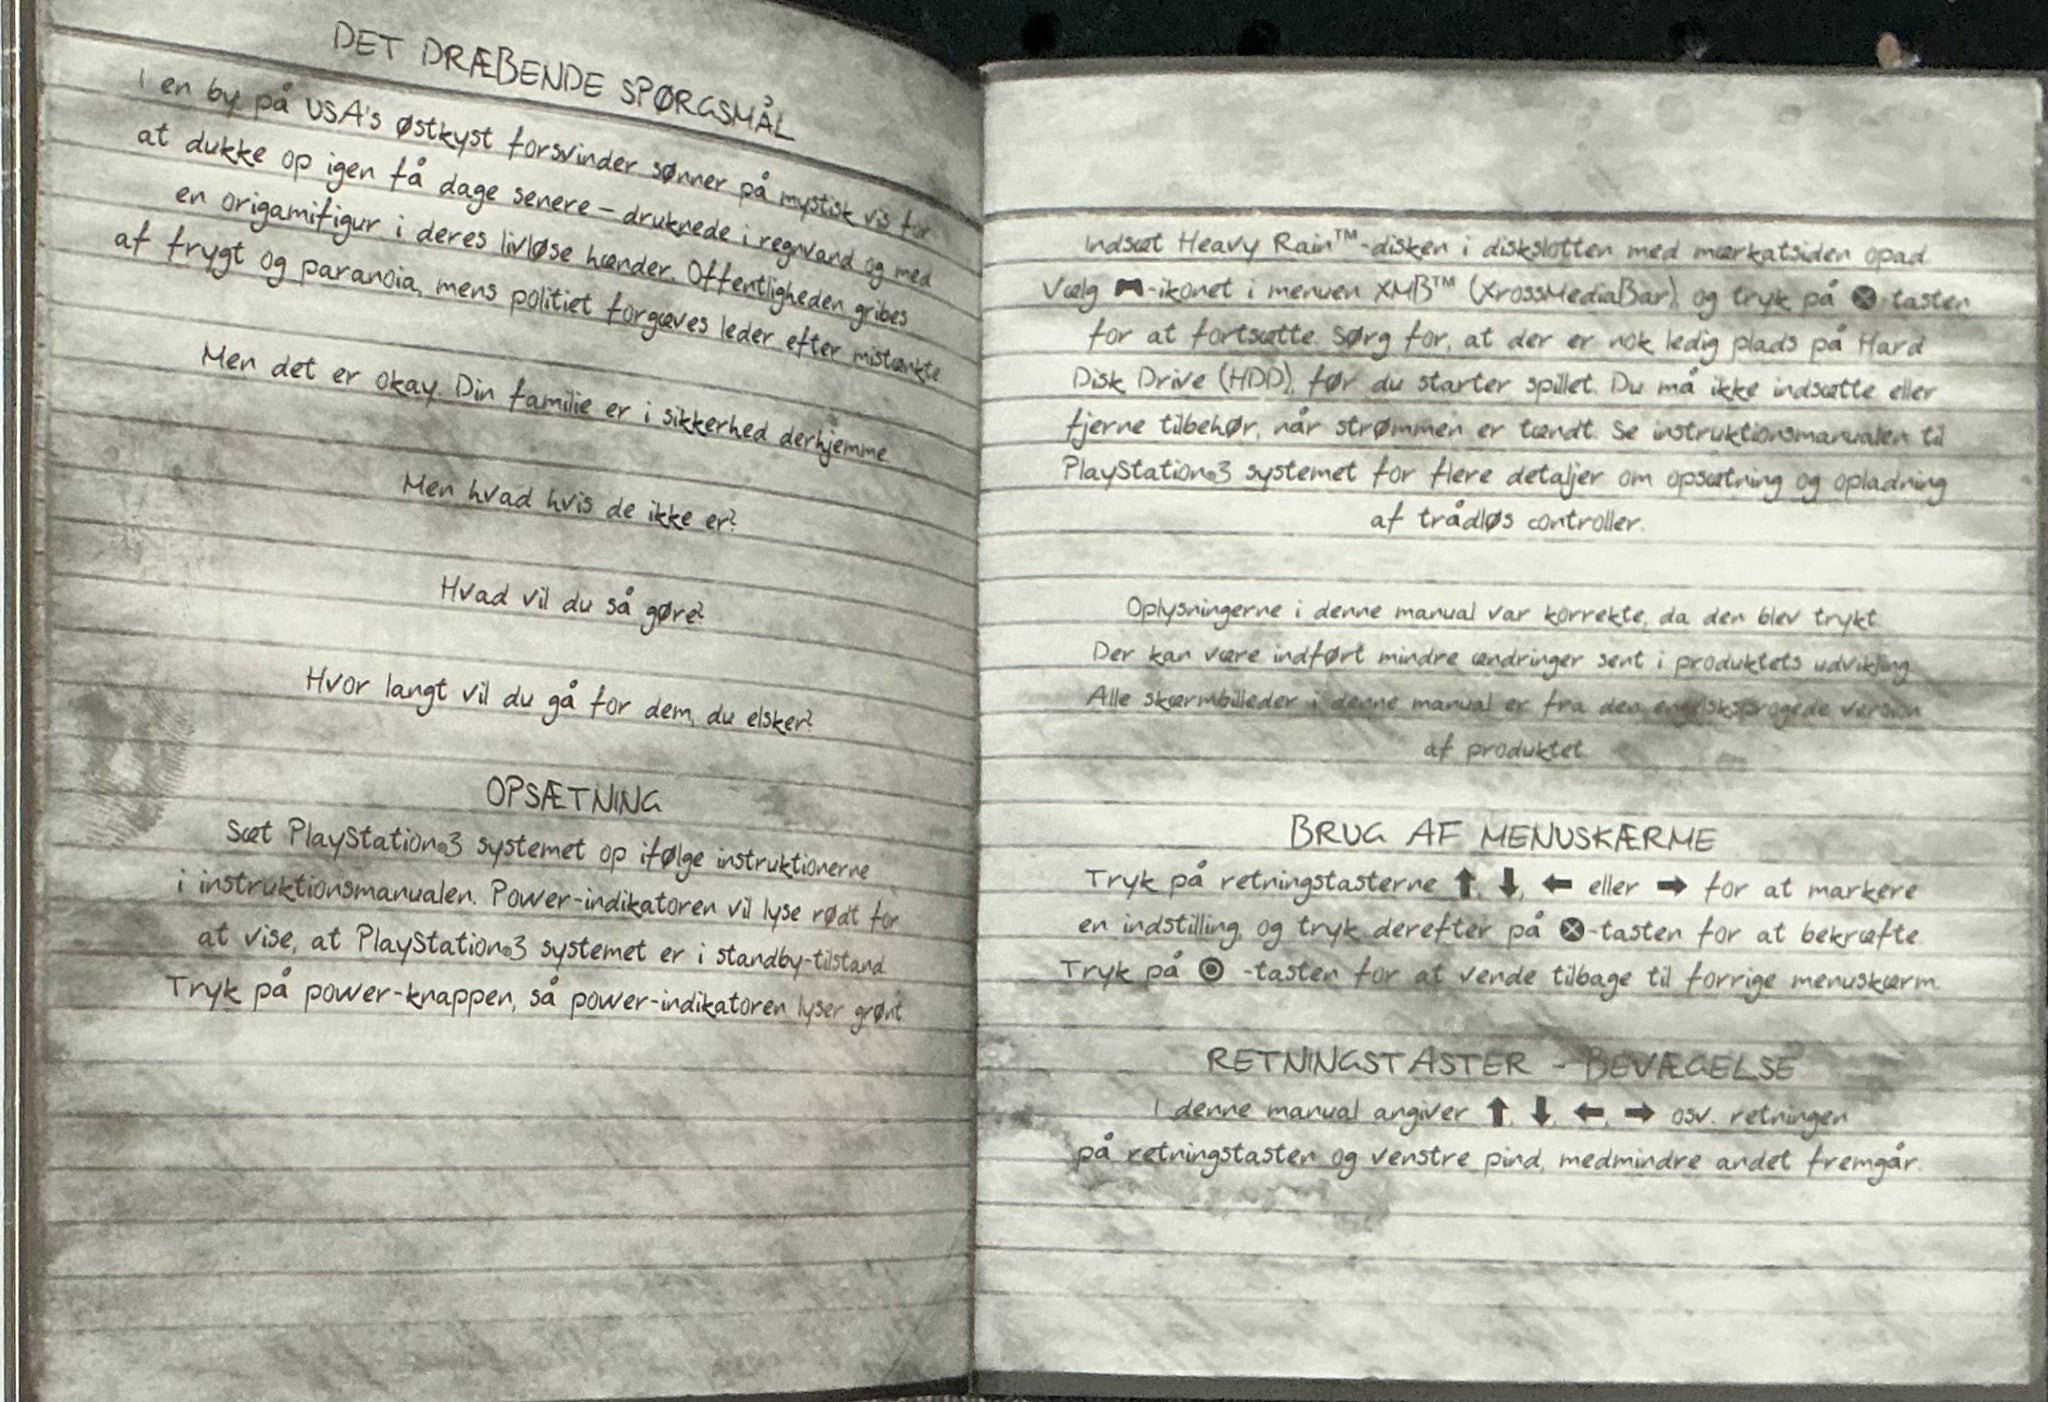 DET DRÆBENDE SPØRGSMÅL
I en by på USA's østkyst forsvinder sønner på mystisk vis for
at dukke op igen få dage senere – druknede i regnvand og med
en origamifigur i deres livløse hænder. Offentligheden gribes
af frygt og paranoia, mens politiet forgæves leder efter mistænkte.
Men det er okay. Din familie er i sikkerhed derhjemme.
Men hvad hvis de ikke er?
Hvad vil du så gøre?
Hvor langt vil du gå for dem, du elsker?
OPSÆTNING
Sæt PlayStation®3 systemet op ifølge instruktionerne
i instruktionsmanualen. Power-indikatoren vil lyse rødt for
at vise, at PlayStation®3 systemet er i standby-tilstand.
Tryk på power-knappen, så power-indikatoren lyser grønt.
Indsæt Heavy Rain™-disken i diskslotten med mærkatsiden opad.
Vælg 🎮-ikonet i menuen XMB™ (XrossMediaBar), og tryk på ⊗-tasten
for at fortsætte. Sørg for, at der er nok ledig plads på Hard
Disk Drive (HDD), før du starter spillet. Du må ikke indsætte eller
fjerne tilbehør, når strømmen er tændt. Se instruktionsmanualen til
PlayStation®3 systemet for flere detaljer om opsætning og opladning
af trådløs controller.
Oplysningerne i denne manual var korrekte, da den blev trykt.
Der kan være indført mindre ændringer sent i produktets udvikling.
Alle skærmbilleder i denne manual er fra den engelsksprogede version
af produktet.
BRUG AF MENUSKÆRME
Tryk på retningstasterne ⬆, ⬇, ⬅ eller ➡ for at markere
en indstilling, og tryk derefter på ⊗-tasten for at bekræfte.
Tryk på ◎ -tasten for at vende tilbage til forrige menuskærm.
RETNINGSTASTER - BEVÆGELSE
I denne manual angiver ⬆, ⬇, ⬅, ➡ osv. retningen
på retningstasten og venstre pind, medmindre andet fremgår.